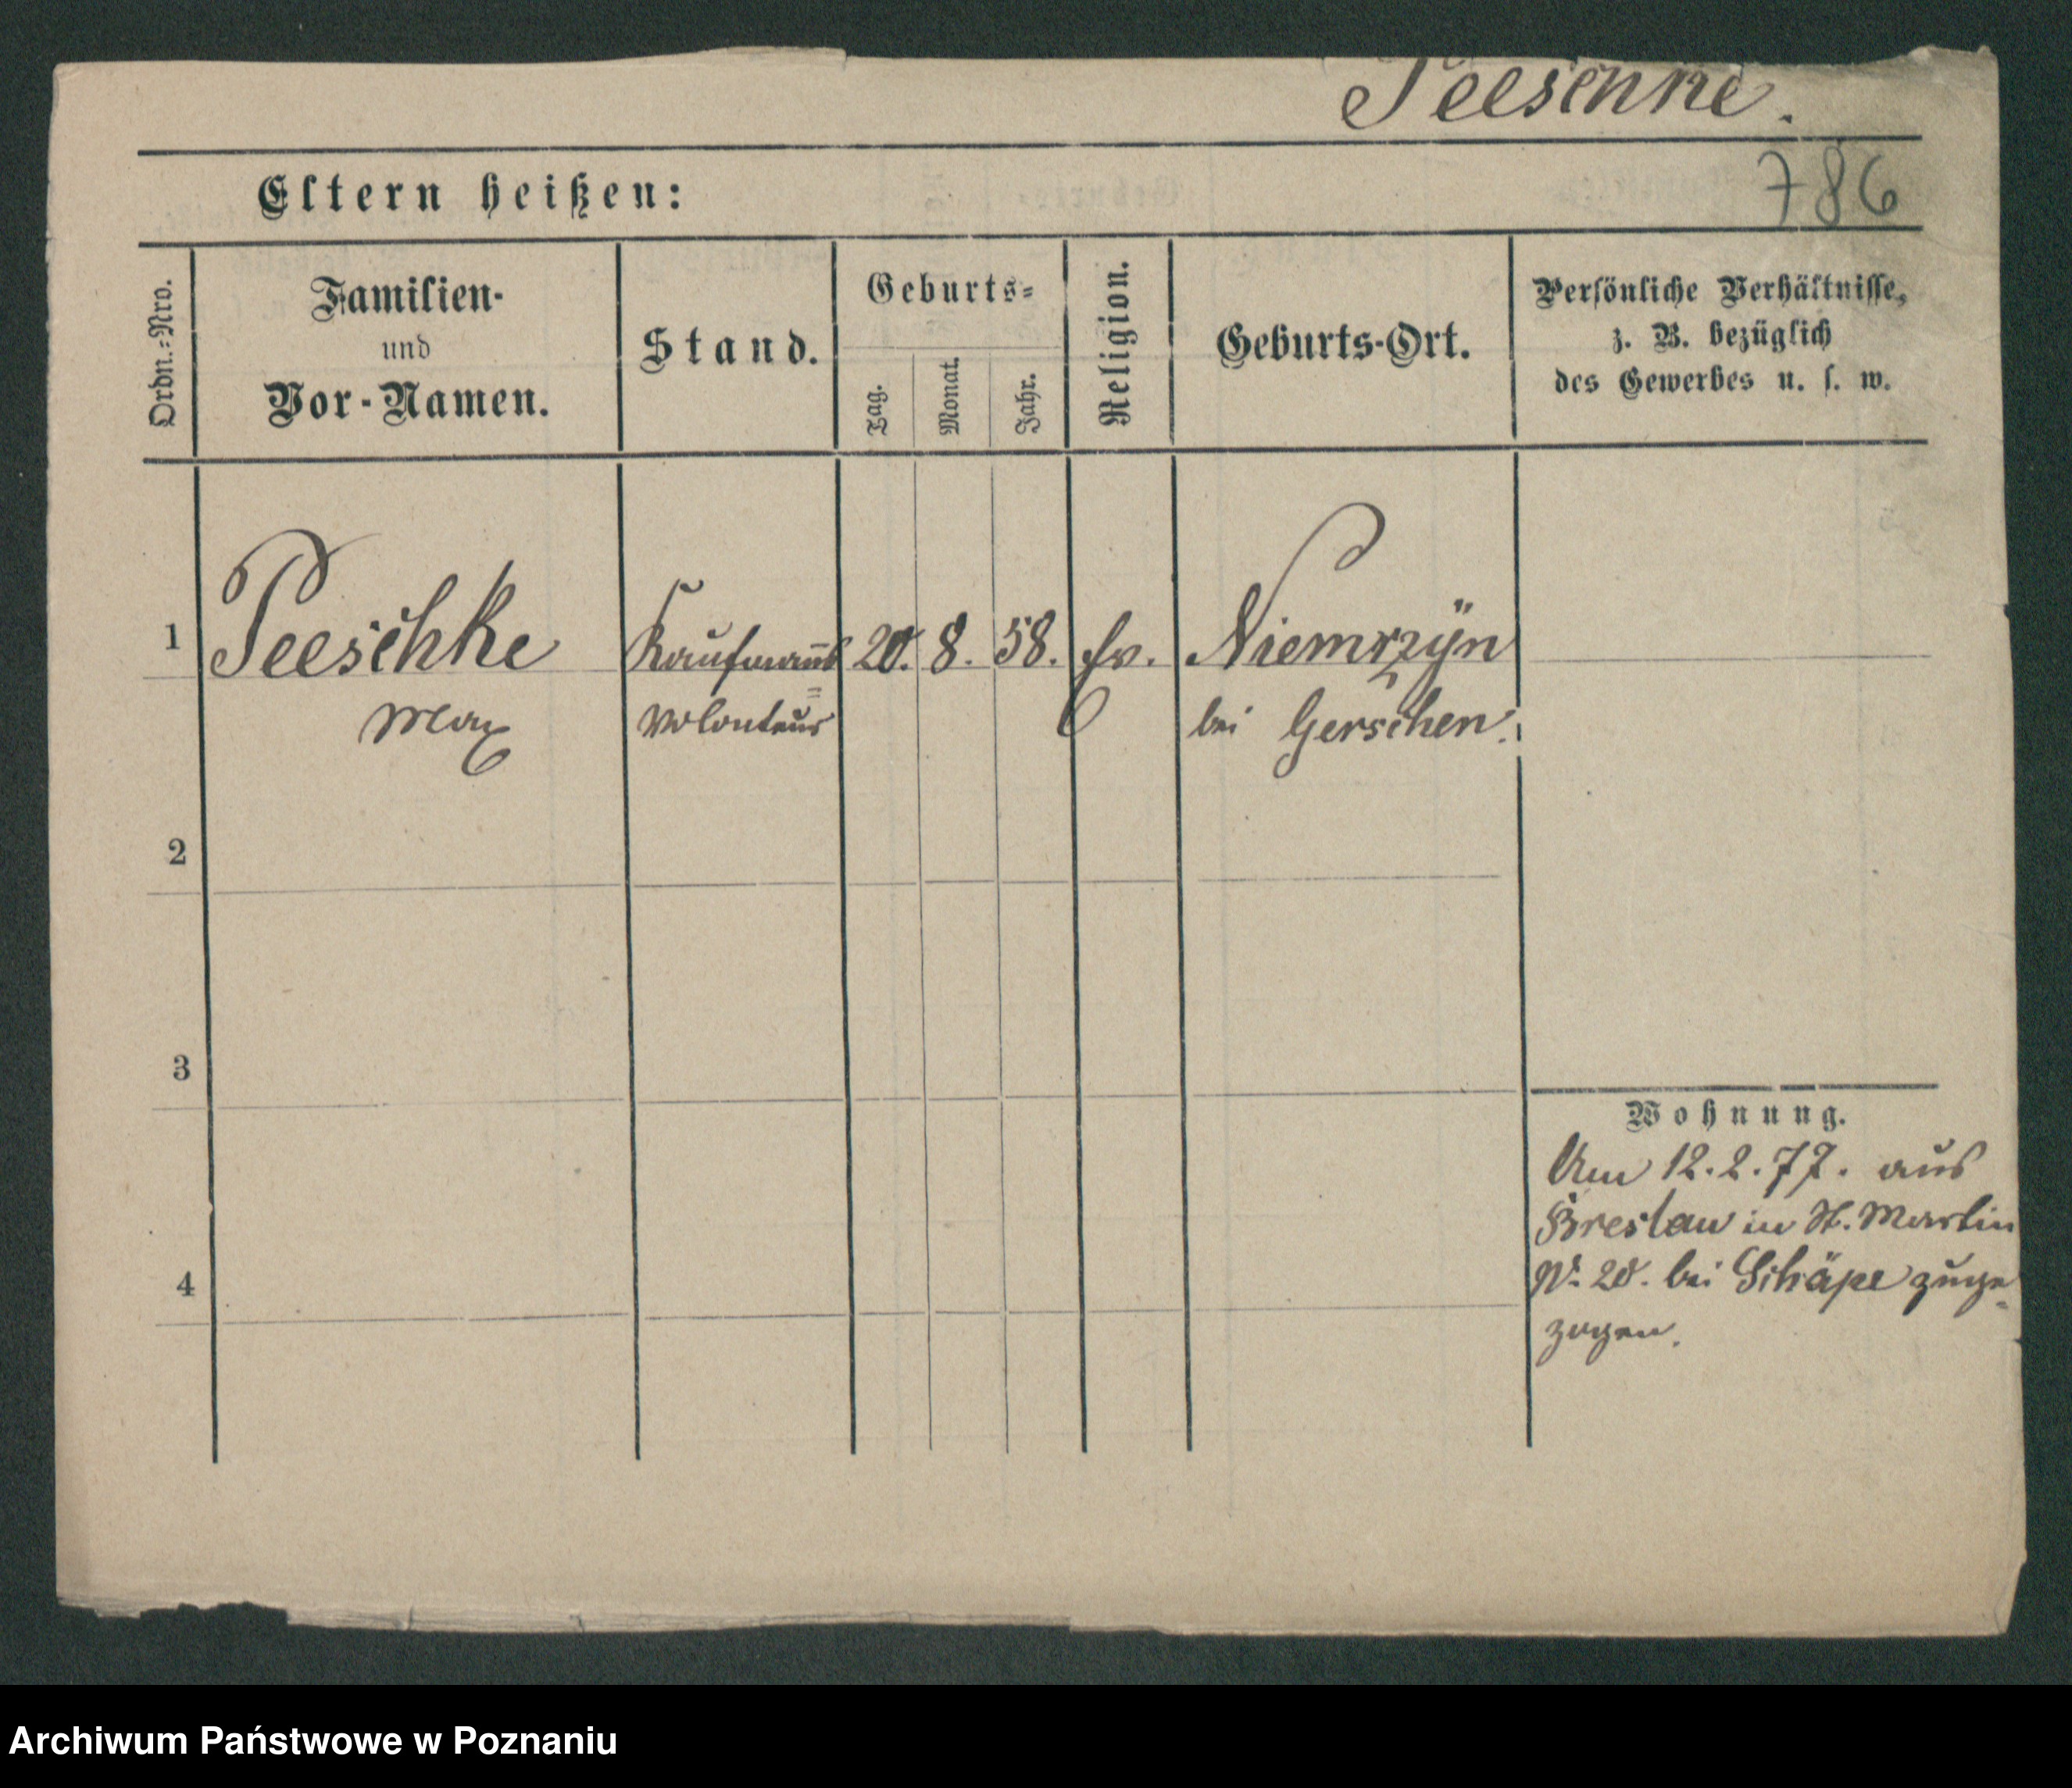 Peeschke.
786
Eltern heißen:
Ordn.-Nro.
Familien-
und
Vor-Namen.
Stand.
Geburts-
Tag.
Monat.
Jahr.
Religion.
Geburts-Ort.
Persönliche Verhältnisse,
z. B. bezüglich
des Gewerbes u. s. w.
1
Peeschke
Max
Kaufmanns
Volonteur
20. 8. 58.
ev.
Niemrzÿn
bei Gerschen.
2
3
4
Wohnung.
Am 12.2.77. aus
Breslau in St. Martin
No 20. bei Schäpe zuge-
zogen.
Archiwum Państwowe w Poznaniu